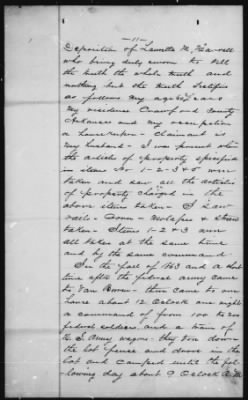 -11-
Deposition of M.
who being duly sworn to tell
the truth the whole truth and
nothing but the truth testifies
as follows my age years
my residence Crawford County
Arkansas and my occupation
a house keeper - Claimant is
my husband - I was present when
the articles of property specified
in items No 1-2-3 & 5 were
taken and saw all the articles
of property charged in the
above items taken - I saw
Corn - Molasses &
taken - Items 1-2 & 3 were
all taken at the same time
and by the same command -
In the fall of 1863 and a short
time after the federal army came
to Van Buren - there came to our
house about 12 Oclock one night
a command of from 100 to 200
federal soldiers and a train of
U. S. Army wagons - they tore down
the lot fence and drove in the
lot and camped until the fol-
lowing day about 9 Oclock A.M.